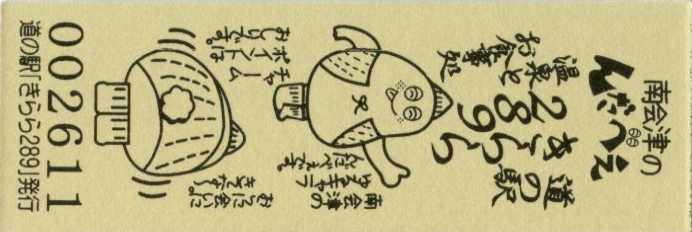 南会津の
んだべぇ
道の駅
きらら
289
温泉と
お食事処
南会津の
ゆるキャラ
んだべぇです。
チャーム
ポイントは
おしりです。
おらに会いに
002611
道の駅「きらら289」発行